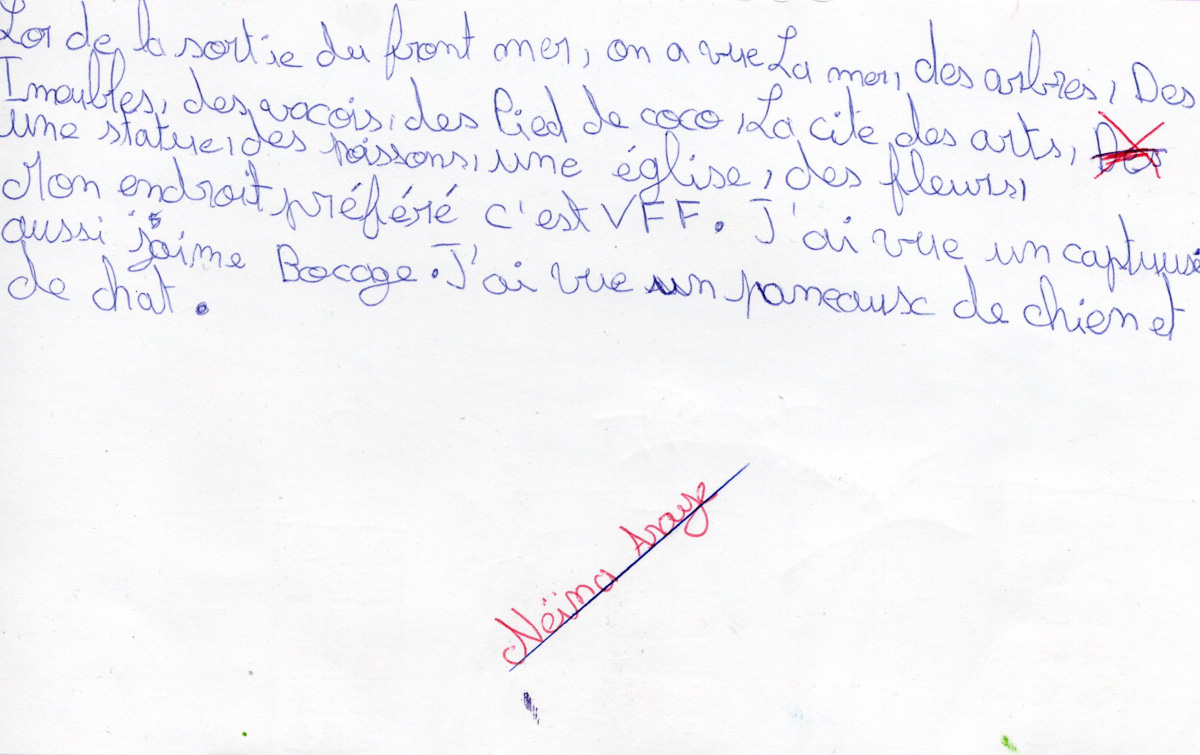 Lor de la sortie du front mer, on a vue La mer, des arbres, Des
Imeubles, des vacois, des Pied de coco, La cité des arts,
une statue, des poissons, une église, des fleurs,
Mon endroit préféré c'est VFF. J'ai vue un captuse
aussi j'aime Bocage. J'ai vue un paneaux de chien et
de chat.
Néima